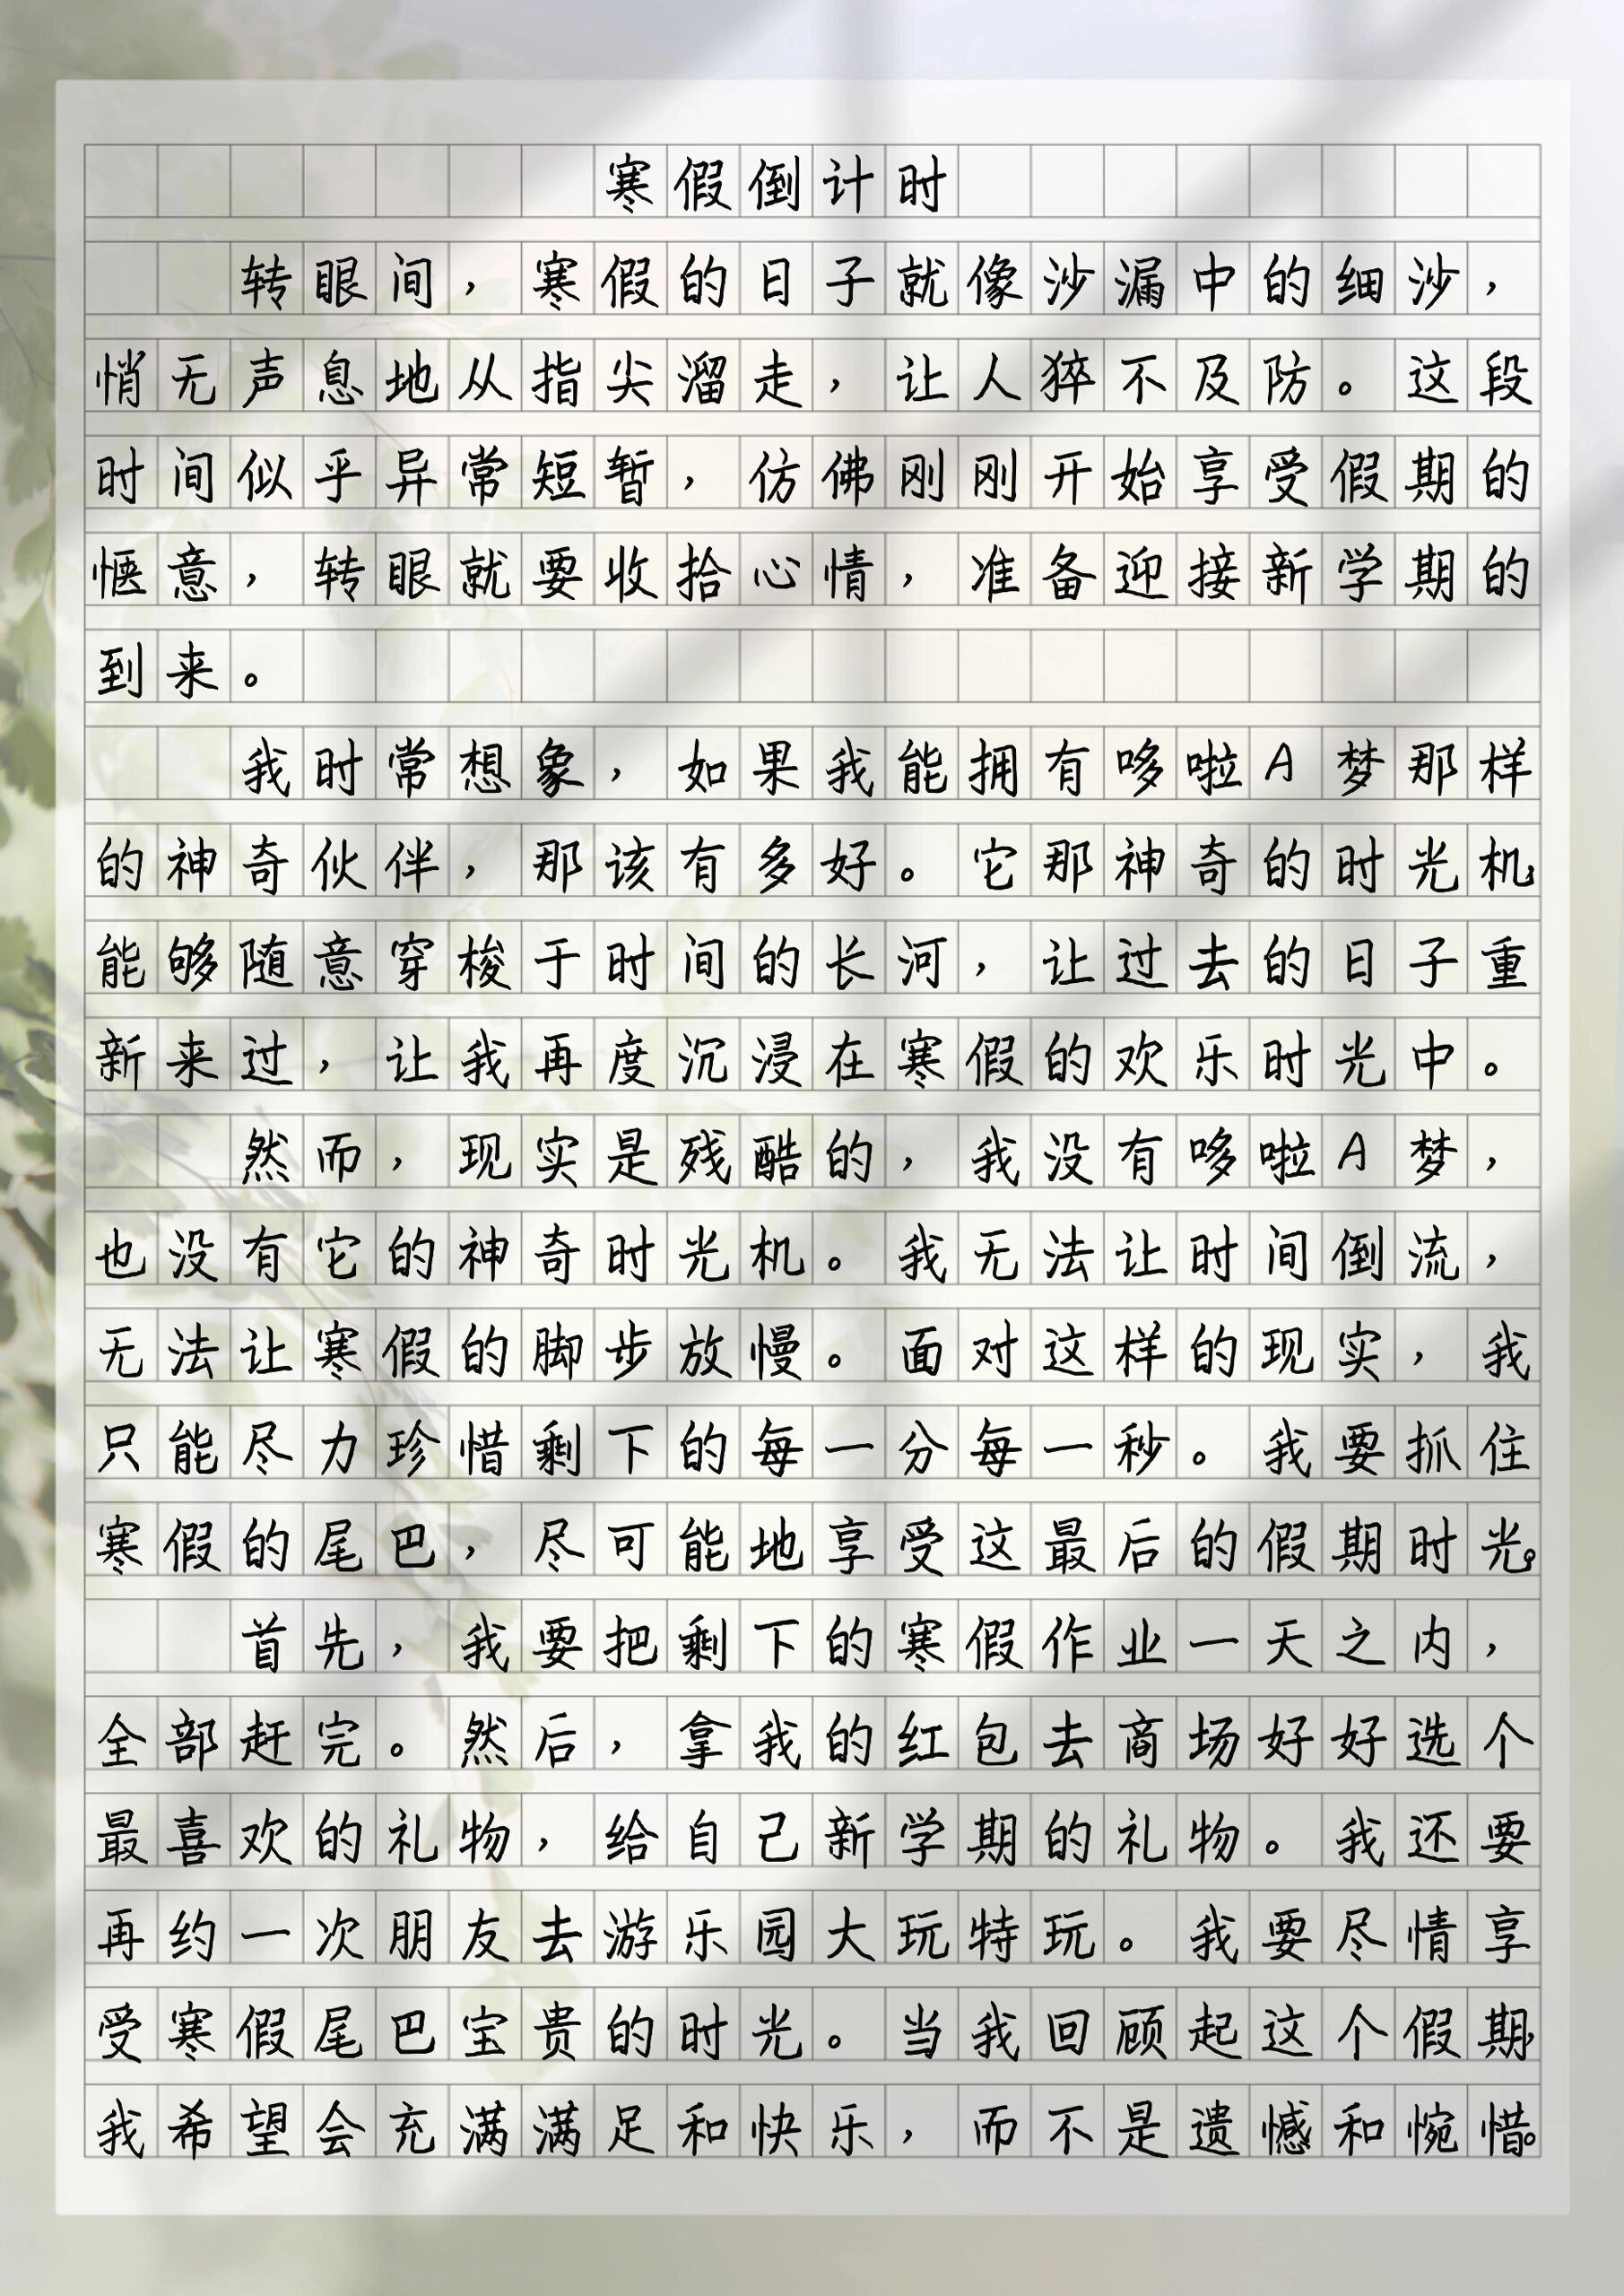 寒假倒计时
转眼间，寒假的日子就像沙漏中的细沙，
悄无声息地从指尖溜走，让人猝不及防。这段
时间似乎异常短暂，仿佛刚刚开始享受假期的
惬意，转眼就要收拾心情，准备迎接新学期的
到来。
我时常想象，如果我能拥有哆啦A梦那样
的神奇伙伴，那该有多好。它那神奇的时光机，
能够随意穿梭于时间的长河，让过去的日子重
新来过，让我再度沉浸在寒假的欢乐时光中。
然而，现实是残酷的，我没有哆啦A梦，
也没有它的神奇时光机。我无法让时间倒流，
无法让寒假的脚步放慢。面对这样的现实，我
只能尽力珍惜剩下的每一分每一秒。我要抓住
寒假的尾巴，尽可能地享受这最后的假期时光。
首先，我要把剩下的寒假作业一天之内，
全部赶完。然后，拿我的红包去商场好好选个
最喜欢的礼物，给自己新学期的礼物。我还要
再约一次朋友去游乐园大玩特玩。我要尽情享
受寒假尾巴宝贵的时光。当我回顾起这个假期，
我希望会充满满足和快乐，而不是遗憾和惋惜。